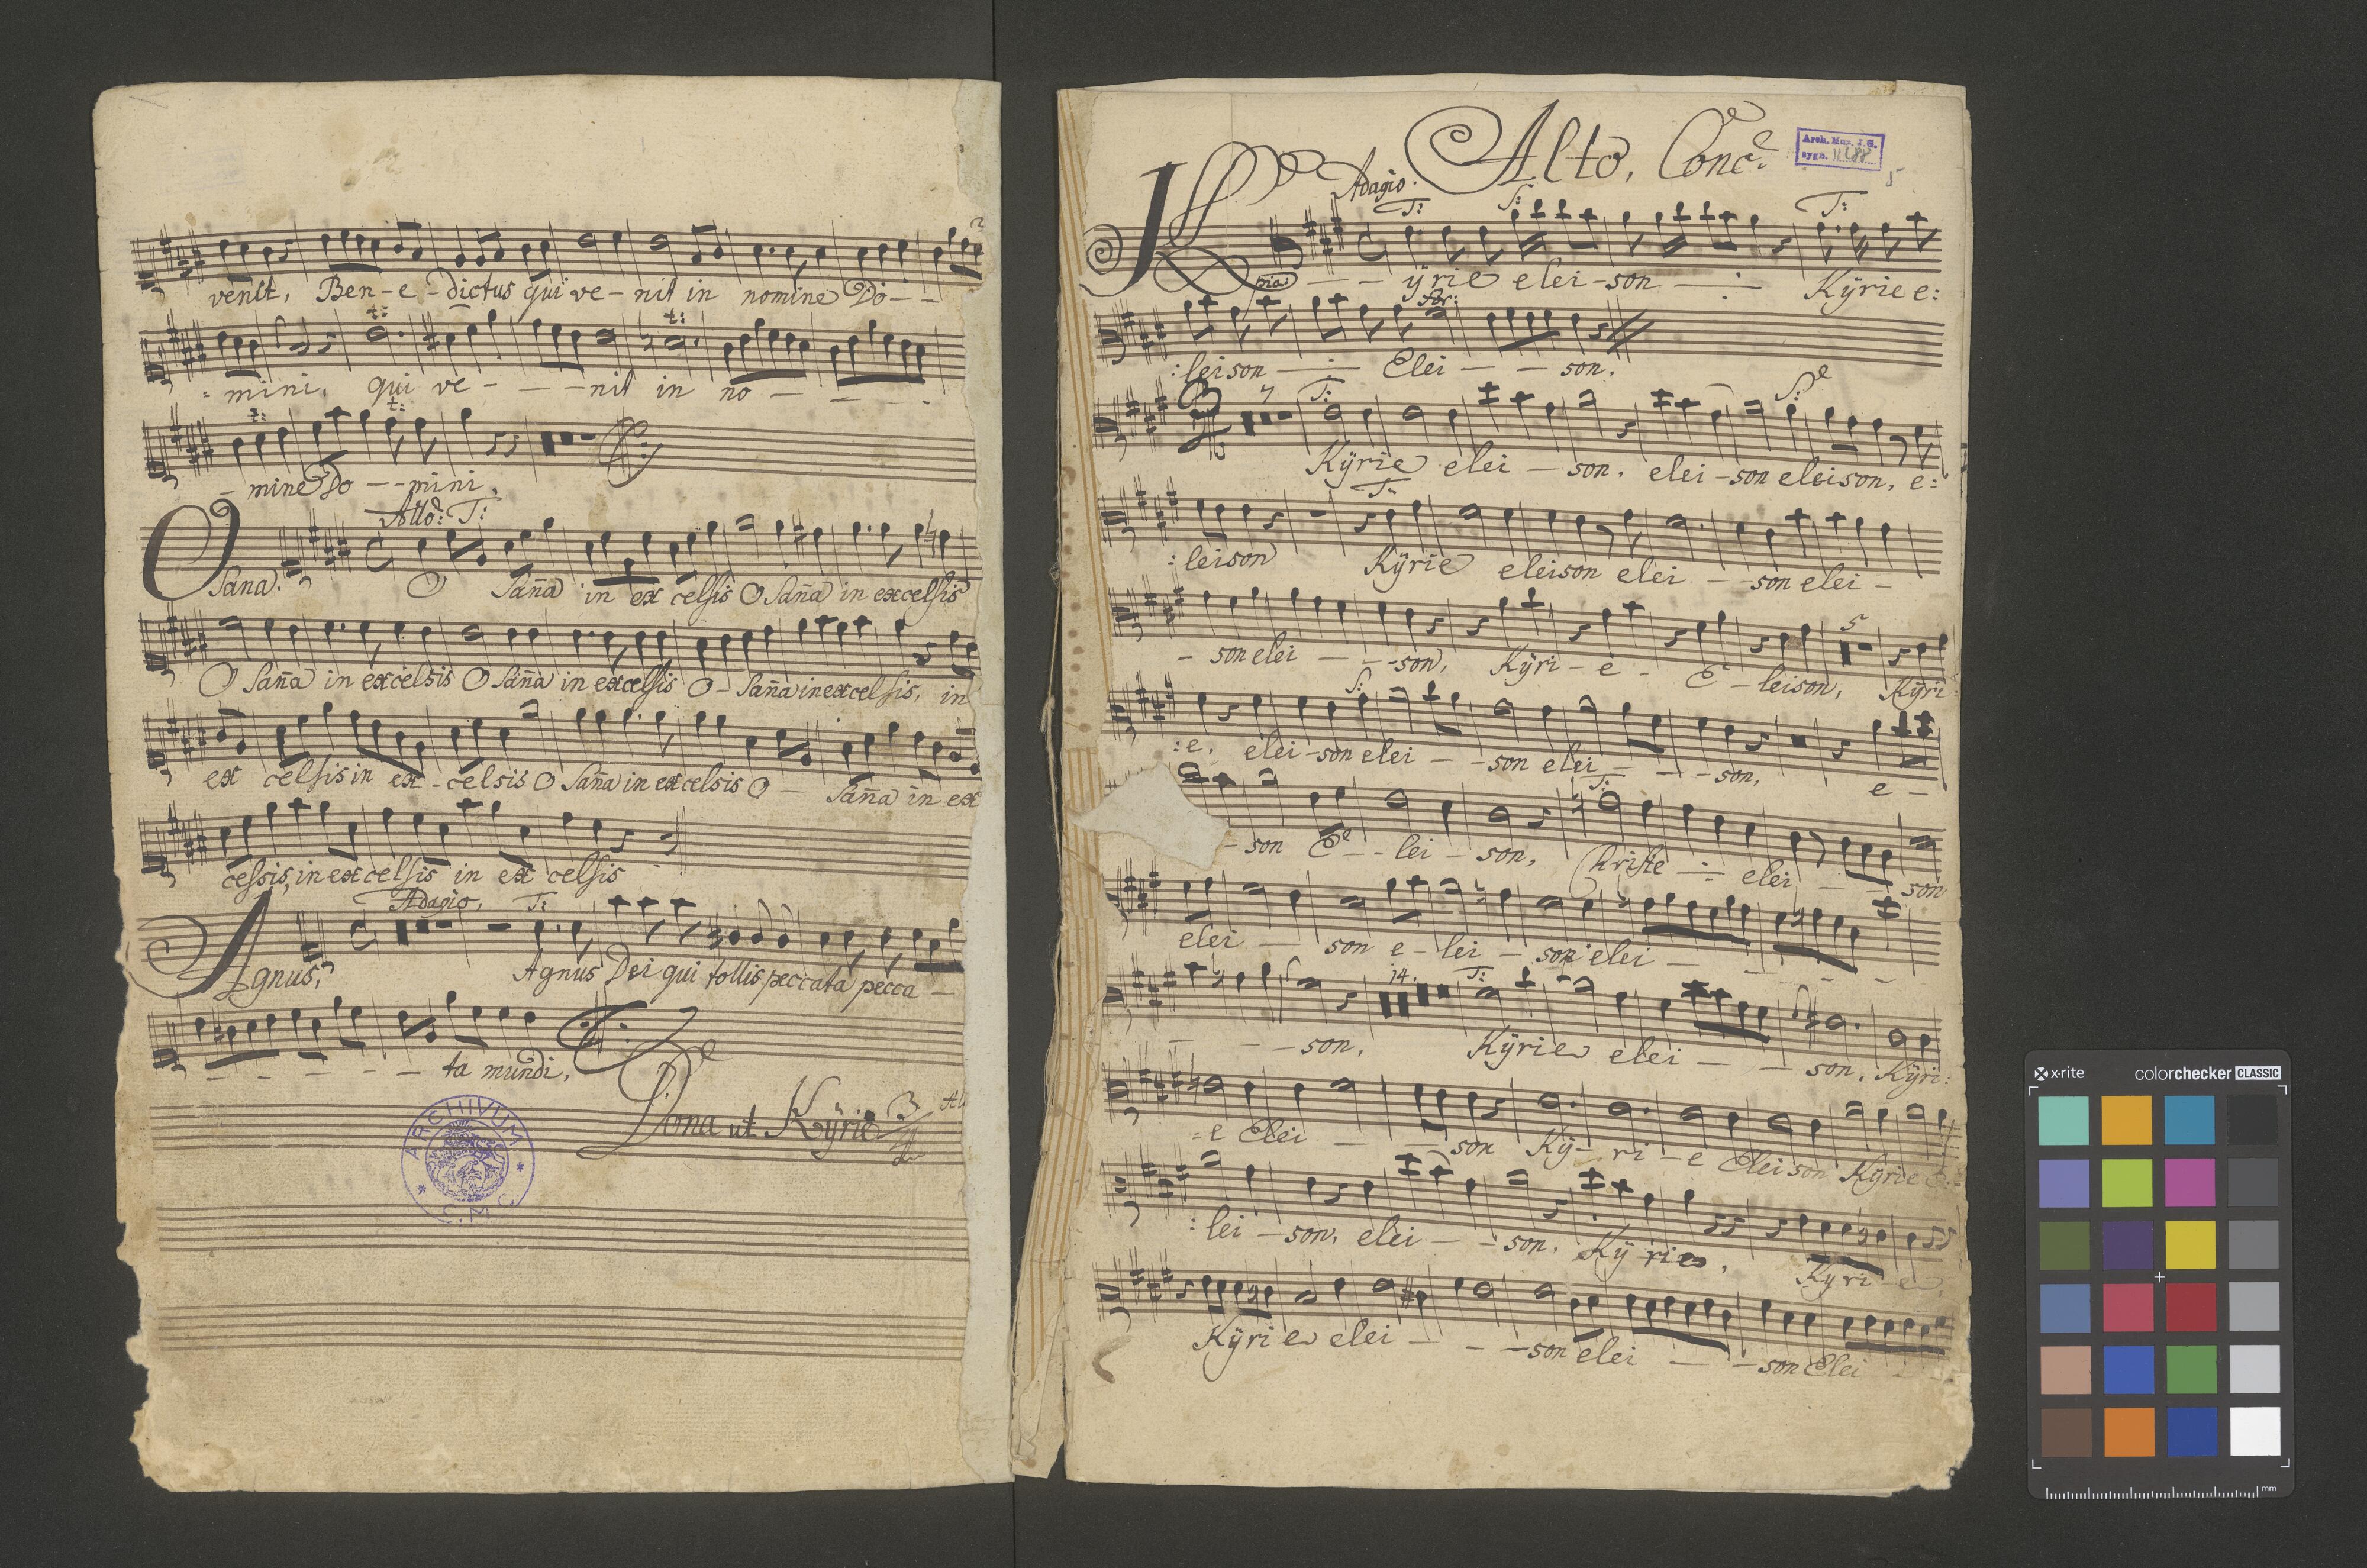 venit, Ben-e-dictus qui ve-nit in nomine Do--
:mini, qui ve----nit in no----
-mine Do---mini.
Allo: T:
Osana. O Sana in ex celsis O Sana in excelsis
O Sana in excelsis O Sana in excelsis O-Sana in excelsis, in
ex celsis in ex-celsis O Sana in excelsis O- Sana in ex
celsis, in excelsis in ex celsis
Adagio, T:
Agnus, Agnus Dei qui tollis peccata pecca-
------ta mundi,
Dona ut Kÿrie 3
ARCHIVUM
Alto, Conc:
Arch. Muz. J.G.
sygn. II 688
5
Adagio: T: S: T:
pia --- ÿrie elei-son -÷- Kÿrie e:
for:
:leison -÷- Elei---son.
7 T: S:
Kÿrie elei-son, elei-son eleison, e:
T:
:leison Kÿrie eleison elei--son elei-
5
-son elei---son, Kÿri-e- E-leison, Kÿri
S:
:e, elei-son elei--son elei---son, e-
T:
-son E--lei-son, Christe -÷- elei---son
elei-son e-lei-son elei----
14. T:
---son, Kÿrie elei---son, Kÿri:
:e Elei---son Kÿ-ri-e Eleison Kÿrie E:
:lei-son, elei---son, Kÿ rie, Kÿri-e,
Kÿri e elei----son elei---son Elei
x·rite colorchecker CLASSIC
mm